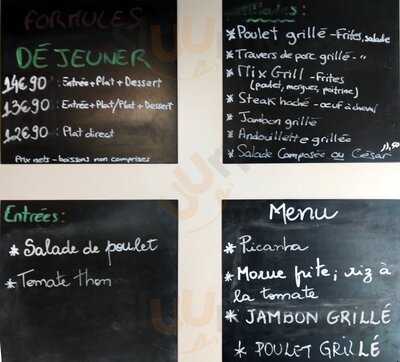 FORMULES
DÉJEUNER
14€90 : Entrée + Plat + Dessert
13€90 : Entrée + Plat / Plat + Dessert
12€90 : Plat direct
Prix nets - boissons non comprises
* Poulet grillé - Frites, salade
* Travers de porc grillé - "
* Mix Grill - Frites
(poulet, merguez, poitrine)
* Steak haché - oeuf à cheval
* Jambon grillé
* Andouillette grillée
* Salade Composée ou César
Entrées :
* Salade de poulet
* Tomate thon
Menu
* Picanha
* Morue frite ; riz à
la tomate
* JAMBON GRILLÉ
* POULET GRILLÉ